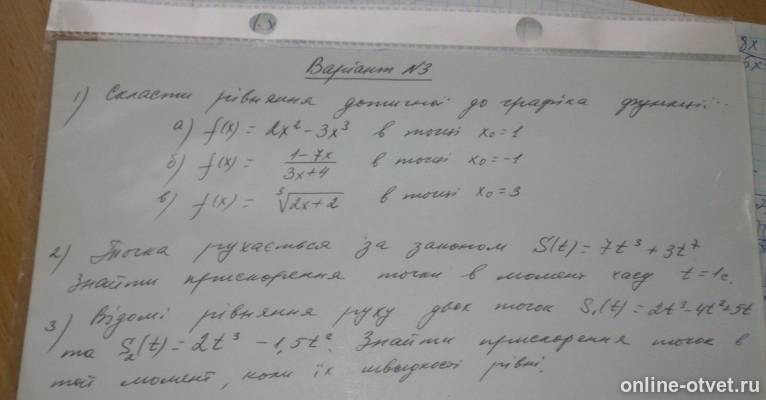 Варіант N3
1) Скласти рівняння дотичної до графіка функції:
а) f(x) = 2x² - 3x³ в точці x₀ = 1
б) f(x) = (1-7x)/(3x+4) в точці x₀ = -1
в) f(x) = ³√(2x+2) в точці x₀ = 3
2) Точка рухається за законом S(t) = 7t³ + 3t⁷
Знайти прискорення точки в момент часу t = 1c.
3) Відомі рівняння руху двох точок S₁(t) = 2t³ - 4t² + 5t
та S₂(t) = 2t³ - 1,5t². Знайти прискорення точок в
той момент, коли їх швидкості рівні.
online-otvet.ru